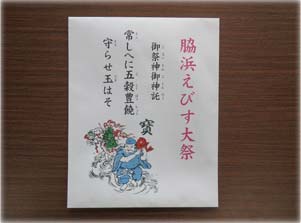 脇浜えびす大祭
御祭神御神託
常しへに五穀豊饒
守らせ玉はそ
寳